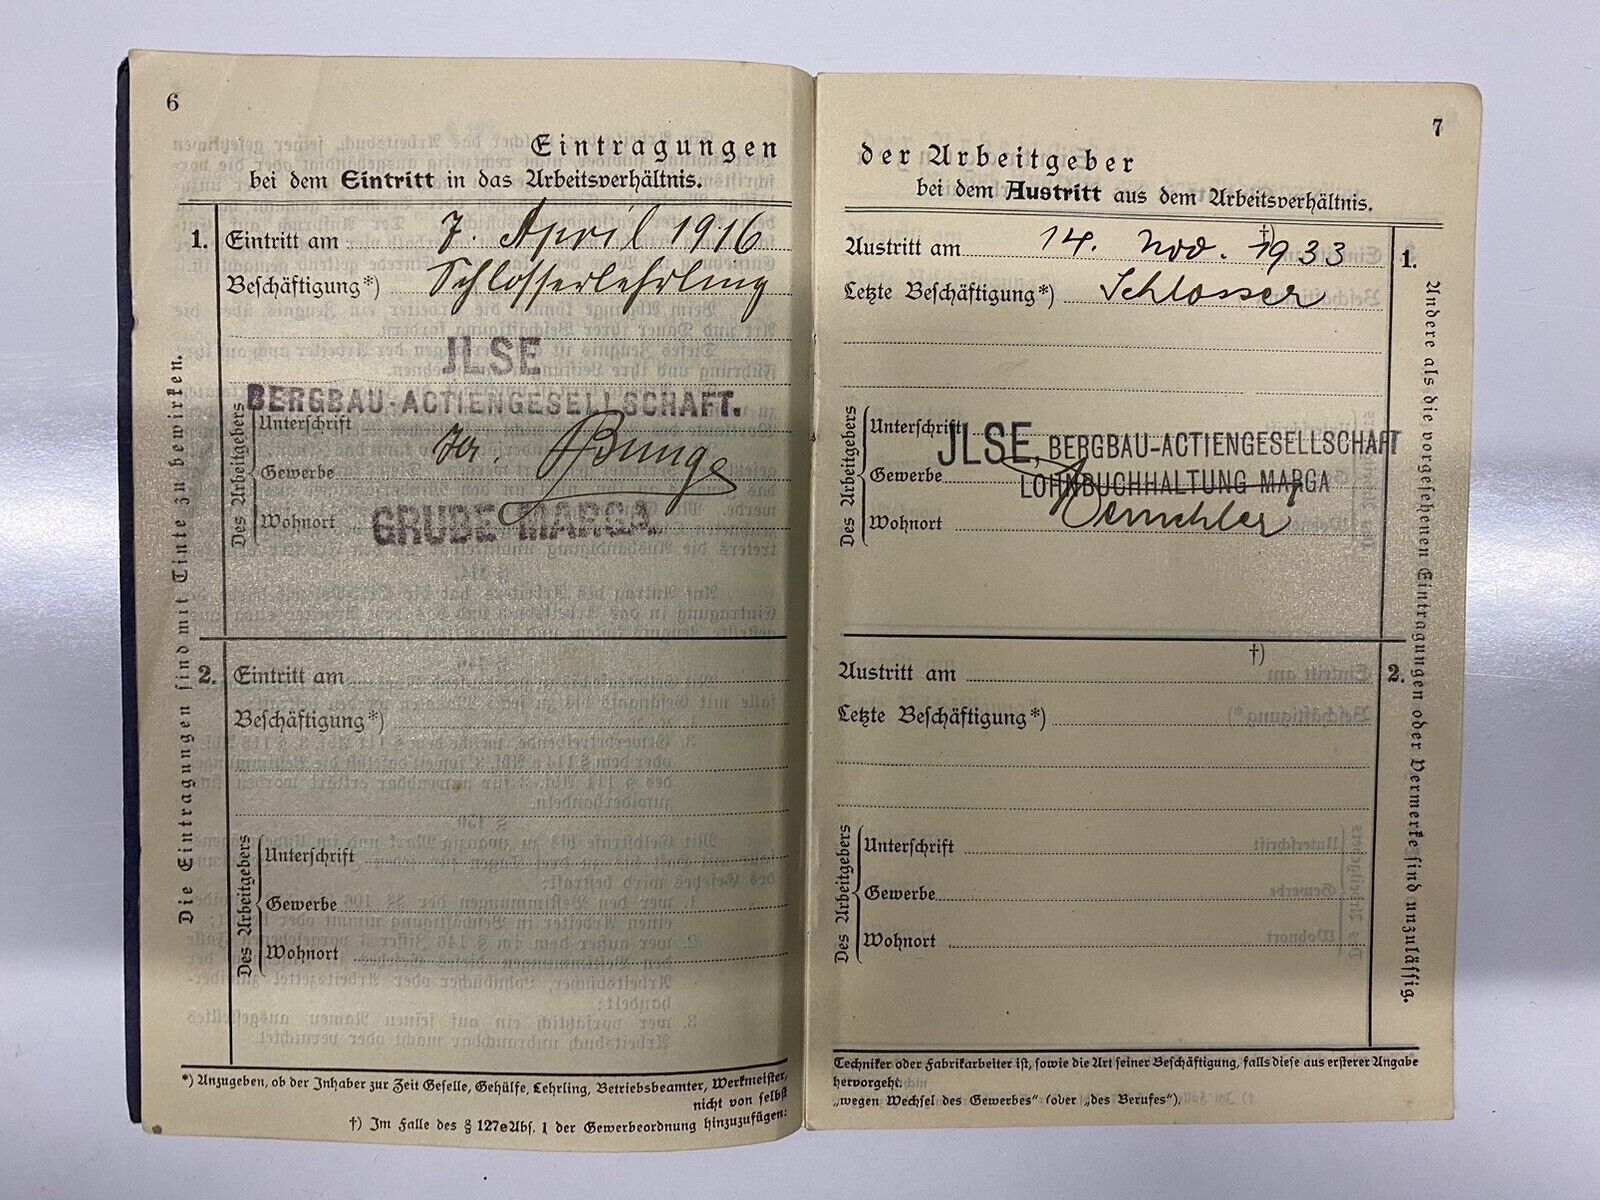 6
Eintragungen
bei dem Eintritt in das Arbeitsverhältnis.
Die Eintragungen sind mit Tinte zu bewirken.
1. Eintritt am 7. April 1916
Beschäftigung*) Schlosserlehrling
JLSE
BERGBAU-ACTIENGESELLSCHAFT.
Des Arbeitgebers
Unterschrift
Bunge
Gewerbe
Wohnort
GRUBE MARGA.
2. Eintritt am
Beschäftigung*)
Des Arbeitgebers
Unterschrift
Gewerbe
Wohnort
*) Anzugeben, ob der Inhaber zur Zeit Geselle, Gehülfe, Lehrling, Betriebsbeamter, Werkmeister,
nicht von selbst
†) Im Falle des § 127e Abs. 1 der Gewerbeordnung hinzuzufügen:
7
der Arbeitgeber
bei dem Austritt aus dem Arbeitsverhältnis.
†)
Austritt am 14. Nov. 1933 1.
Letzte Beschäftigung*) Schlosser
Des Arbeitgebers
Unterschrift
JLSE, BERGBAU-ACTIENGESELLSCHAFT
Gewerbe
LOHNBUCHHALTUNG MARGA
Wohnort
†)
Austritt am 2.
Letzte Beschäftigung*)
Des Arbeitgebers
Unterschrift
Gewerbe
Wohnort
Andere als die vorgesehenen Eintragungen oder Vermerke sind unzulässig.
Techniker oder Fabrikarbeiter ist, sowie die Art seiner Beschäftigung, falls diese aus ersterer Angabe
hervorgeht.
„wegen Wechsel des Gewerbes“ (oder „des Berufes“).